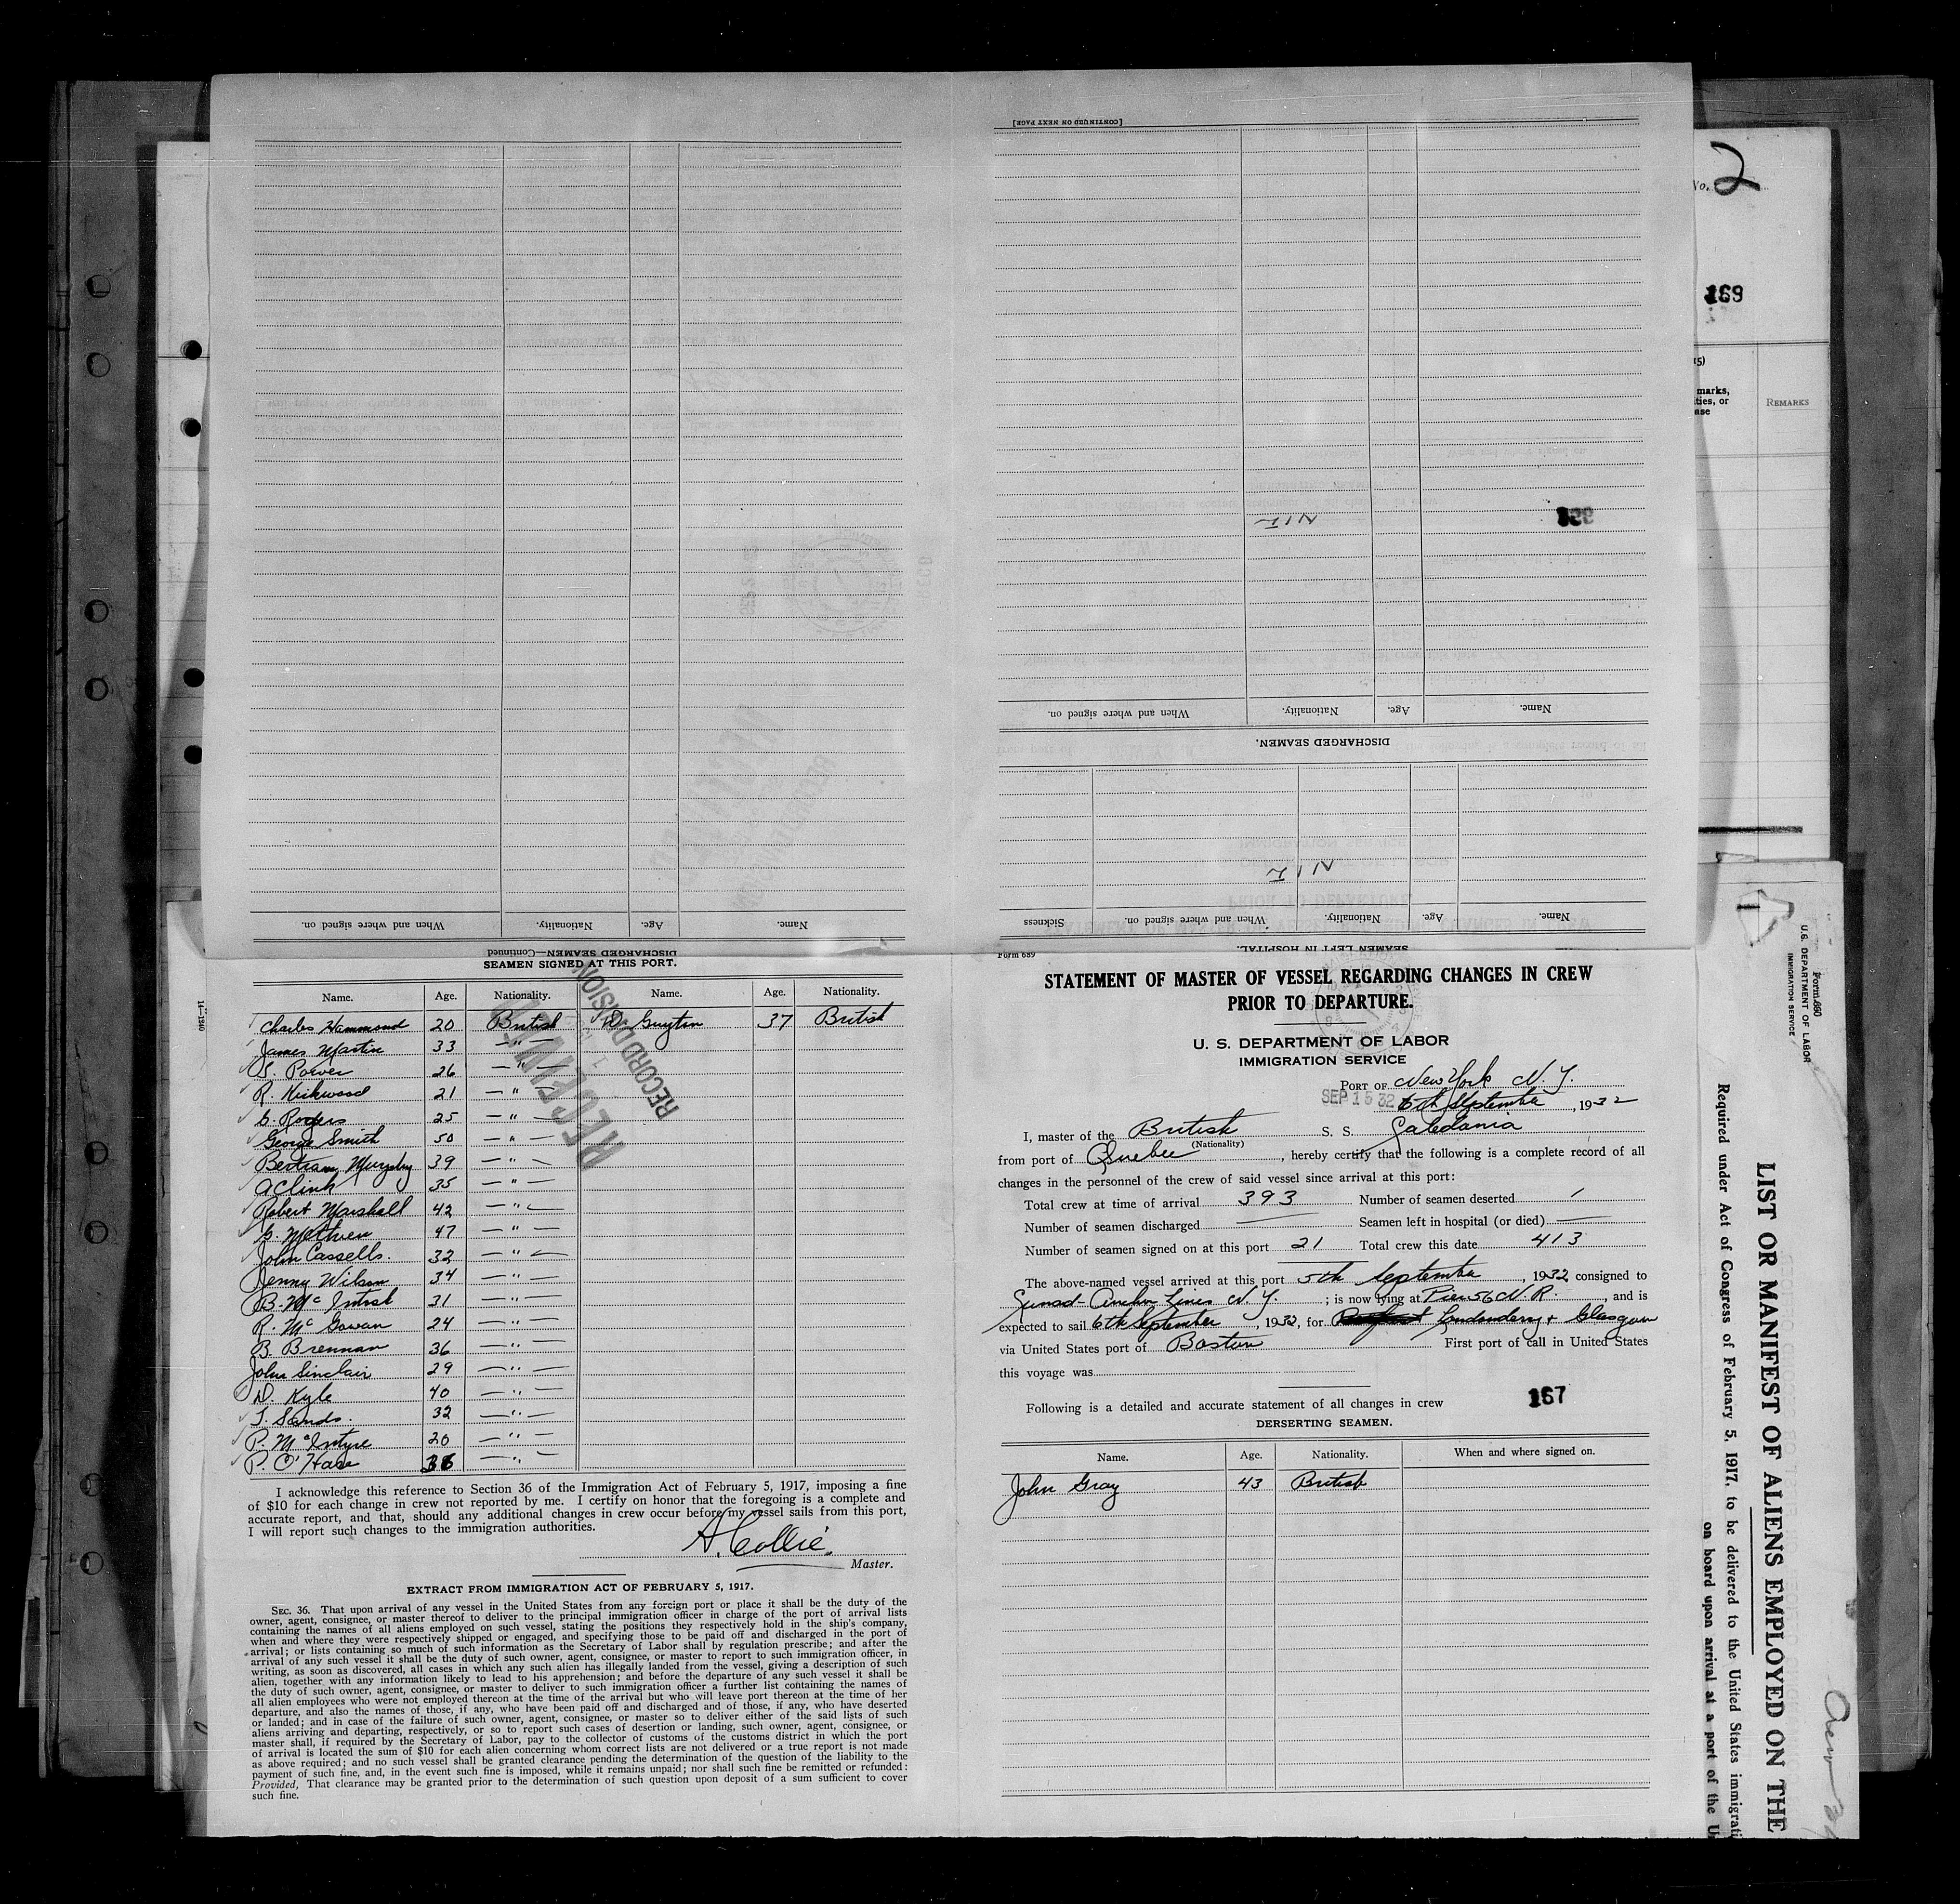 [CONTINUED ON NEXT PAGE]
NIL
When and where signed on. Nationality. Age. Name.
DISCHARGED SEAMEN.
NIL
Sickness When and where signed on. Nationality. Age. Name.
SEAMEN LEFT IN HOSPITAL.
When and where signed on. Nationality. Age. Name.
DISCHARGED SEAMEN—Continued
SEAMEN SIGNED AT THIS PORT.
Name. Age. Nationality. Name. Age. Nationality.
Charles Hammond 20 British D. Guyton 37 British
James Martin 33 — " —
S. Power 26 — " —
R. Kirkwood 21 — " —
C. Rogers 25 — " —
George Smith 50 — " —
Bertram Murphy 39 — " —
A Clink 35 — " —
Robert Marshall 42 — " —
G. Methven 47 — " —
John Cassells. 32 — " —
Jenny Wilson 34 — " —
B. Mc Intosh 31 — " —
R. Mc Gowan 24 — " —
B. Brennan 36 — " —
John Sinclair 29 — " —
D. Kyle 40 — " —
S. Sands. 32 — " —
P. McIntyre 20 — " —
P. O'Hare 36 — " —
RECEIVED
RECORD DIVISION
I acknowledge this reference to Section 36 of the Immigration Act of February 5, 1917, imposing a fine
of $10 for each change in crew not reported by me. I certify on honor that the foregoing is a complete and
accurate report, and that, should any additional changes in crew occur before my vessel sails from this port,
I will report such changes to the immigration authorities.
A. Collie.
Master.
EXTRACT FROM IMMIGRATION ACT OF FEBRUARY 5, 1917.
SEC. 36. That upon arrival of any vessel in the United States from any foreign port or place it shall be the duty of the
owner, agent, consignee, or master thereof to deliver to the principal immigration officer in charge of the port of arrival lists
containing the names of all aliens employed on such vessel, stating the positions they respectively hold in the ship's company,
when and where they were respectively shipped or engaged, and specifying those to be paid off and discharged in the port of
arrival; or lists containing so much of such information as the Secretary of Labor shall by regulation prescribe; and after the
arrival of any such vessel it shall be the duty of such owner, agent, consignee, or master to report to such immigration officer, in
writing, as soon as discovered, all cases in which any such alien has illegally landed from the vessel, giving a description of such
alien, together with any information likely to lead to his apprehension; and before the departure of any such vessel it shall be
the duty of such owner, agent, consignee, or master to deliver to such immigration officer a further list containing the names of
all alien employees who were not employed thereon at the time of the arrival but who will leave port thereon at the time of her
departure, and also the names of those, if any, who have been paid off and discharged and of those, if any, who have deserted
or landed; and in case of the failure of such owner, agent, consignee, or master so to deliver either of the said lists of such
aliens arriving and departing, respectively, or so to report such cases of desertion or landing, such owner, agent, consignee, or
master shall, if required by the Secretary of Labor, pay to the collector of customs of the customs district in which the port
of arrival is located the sum of $10 for each alien concerning whom correct lists are not delivered or a true report is not made
as above required; and no such vessel shall be granted clearance pending the determination of the question of the liability to the
payment of such fine, and, in the event such fine is imposed, while it remains unpaid; nor shall such fine be remitted or refunded:
Provided, That clearance may be granted prior to the determination of such question upon deposit of a sum sufficient to cover
such fine.
14—1240
Form 689
STATEMENT OF MASTER OF VESSEL REGARDING CHANGES IN CREW
PRIOR TO DEPARTURE.
U. S. DEPARTMENT OF LABOR
IMMIGRATION SERVICE
PORT OF New York N. Y.
SEP 15 32 6th September, 1932
I, master of the British S. S. Caledonia
(Nationality)
from port of Quebec, hereby certify that the following is a complete record of all
changes in the personnel of the crew of said vessel since arrival at this port:
Total crew at time of arrival 393 Number of seamen deserted 1
Number of seamen discharged — Seamen left in hospital (or died) —
Number of seamen signed on at this port 21 Total crew this date 413
The above-named vessel arrived at this port 5th September, 1932 consigned to
Cunard-Anchor Lines N. Y.; is now lying at Pier 56 N. R., and is
expected to sail 6th September, 1932, for Londonderry + Glasgow
via United States port of Boston First port of call in United States
this voyage was
Following is a detailed and accurate statement of all changes in crew 167
DERSERTING SEAMEN.
Name. Age. Nationality. When and where signed on.
John Gray 43 British
No. 2
169
marks,
ties, or
ase
REMARKS
Form 680
U.S. DEPARTMENT OF LABOR
IMMIGRATION SERVICE
LIST OR MANIFEST OF ALIENS EMPLOYED ON THE
Required under Act of Congress of February 5, 1917, to be delivered to the United States immigrati
on board upon arrival at a port of the U